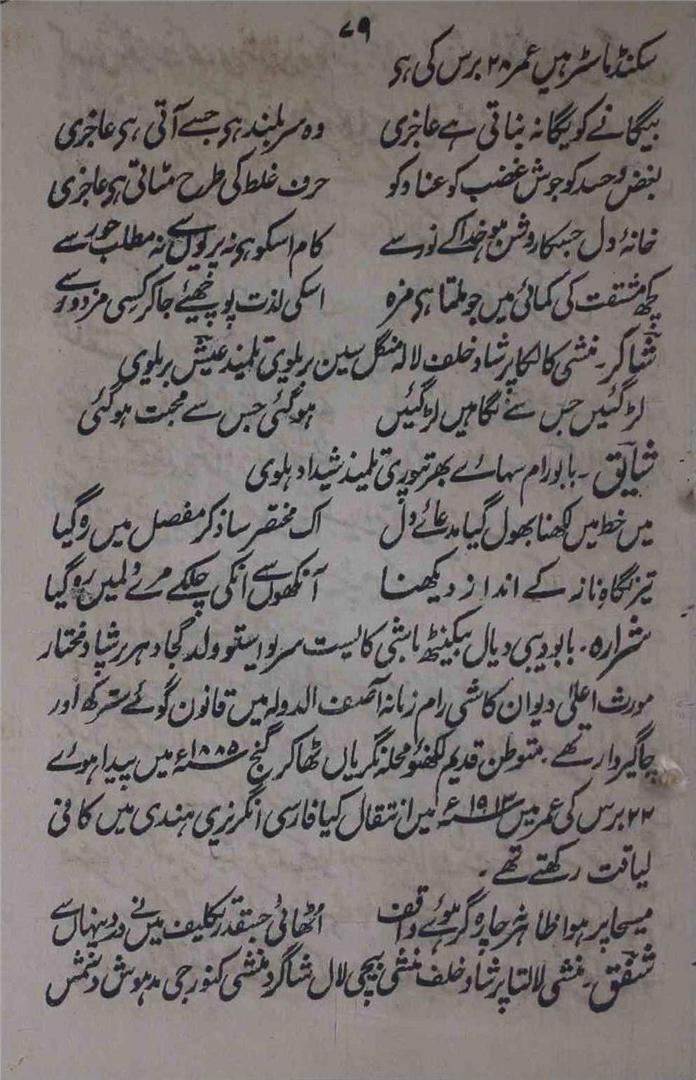 ۷۹
سکنڈ ماسٹر ہیں عمر ۲۸ برس کی ہی
بیگانے کو یگانہ بناتی ہے عاجزی وہ سر بلند ہی جسے آتی ہی عاجزی
بغض و حسد کو جوش غضب کو عناد کو حرف غلط کی طرح مٹاتی ہی عاجزی
خانۂ دل جسکا روشن ہو خدا کے نور سے کام اسکو ہی نہ پریوں سے نہ مطلب حور سے
کچھ مشقت کی کمائی میں جو ملتا ہی مزہ اسکی لذت پوچھیئے جا کر کسی مزدور سے
شاکر۔ منشی کالکا پرشاد خلف لالہ منگل سین بریلوی تلمیذ عیش بریلوی
لڑ گئیں جس سے نگاہیں لڑ گئیں ہو گئی جس سے محبت ہو گئی
شایق۔ بابو رام سہائے بھرتپوری تلمیذ شیدا دہلوی
میں خط میں لکھنا بھول گیا مدعائے دل اک مختصر سا ذکر مفصل میں رہ گیا
تیر نگاہ ناز کے انداز دیکھنا آنکھوں سے انکی چلکے مرے دلمیں رہ گیا
شرارہ۔ بابو دیبی دیال بیکنٹھ باشی کالیست سریواستو ولد گجادھر پرشاد مختار
مورث اعلیٰ دیوان کاشی رام زمانہ آصف الدولہ میں قانون گوئے سترکھ اور
جاگیردار تھے۔ متوطن قدیم لکھنؤ محلہ نگریاں ٹھاکر گنج ۱۸۸۵ء میں پیدا ہوئے
۲۲ برس کی عمر میں ۱۹۱۳ء میں انتقال کیا فارسی انگریزی ہندی میں کافی
لیاقت رکھتے تھے۔
مسیحا پر ہوا ظاہر نہ چارہ گر ہوئے واقف اٹھائی جسقدر تکلیف میں نے درد پنہاں سے
شفق۔ منشی لالتا پرشاد خلف منشی بیچی لال شاگرد منشی کنور جی مدہوش و شمس